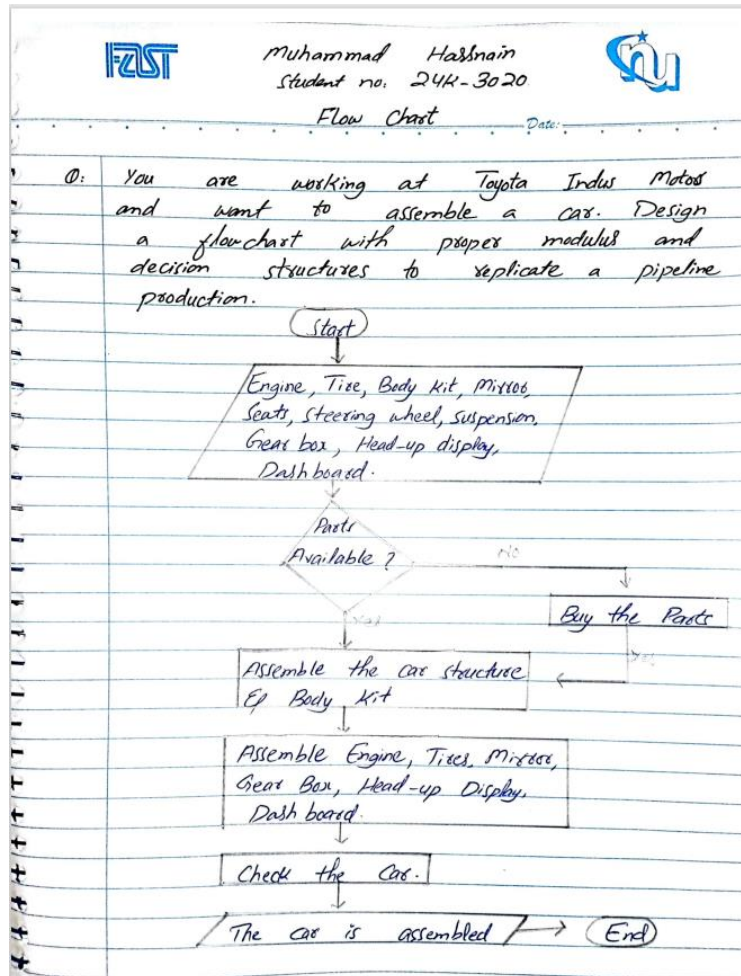 FAST
Muhammad Hassnain
Student no: 24K-3020
nu
Flow Chart
Date:
Q: You are working at Toyota Indus Motor
and want to assemble a car. Design
a flowchart with proper modulus and
decision structures to replicate a pipeline
production.
Start
Engine, Tire, Body Kit, Mirror,
Seats, Steering wheel, Suspension,
Gear box, Head-up display,
Dashboard.
Parts
Available?
No
Buy the Parts
Yes
Yes
Assemble the car structure
& Body Kit
Assemble Engine, Tires, Mirror,
Gear Box, Head-up Display,
Dash board.
Check the Car.
The car is assembled
End